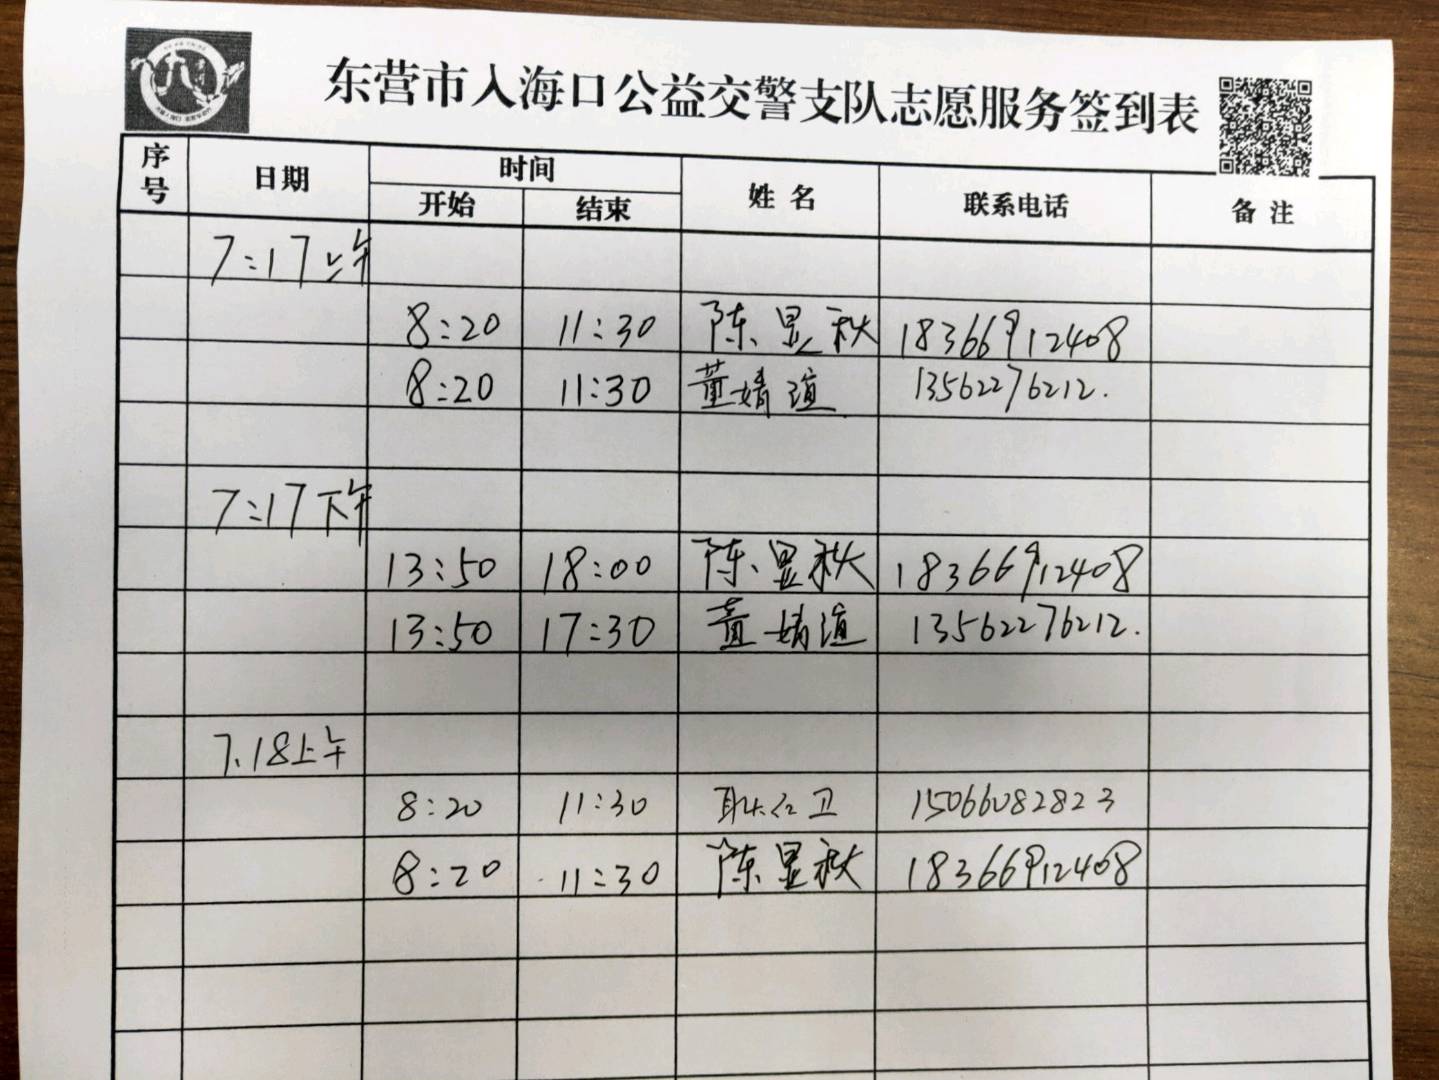 东营市入海口公益交警支队志愿服务签到表
序号 日期 时间 开始 结束 姓名 联系电话 备注
7:17上午
8:20 11:30 陈昱秋 18366912408
8:20 11:30 董婧谊 13562276212.
7:17下午
13:50 18:00 陈昱秋 18366912408
13:50 17:30 董婧谊 13562276212.
7.18上午
8:20 11:30 耿红卫 15066082823
8:20 11:30 陈昱秋 18366912408